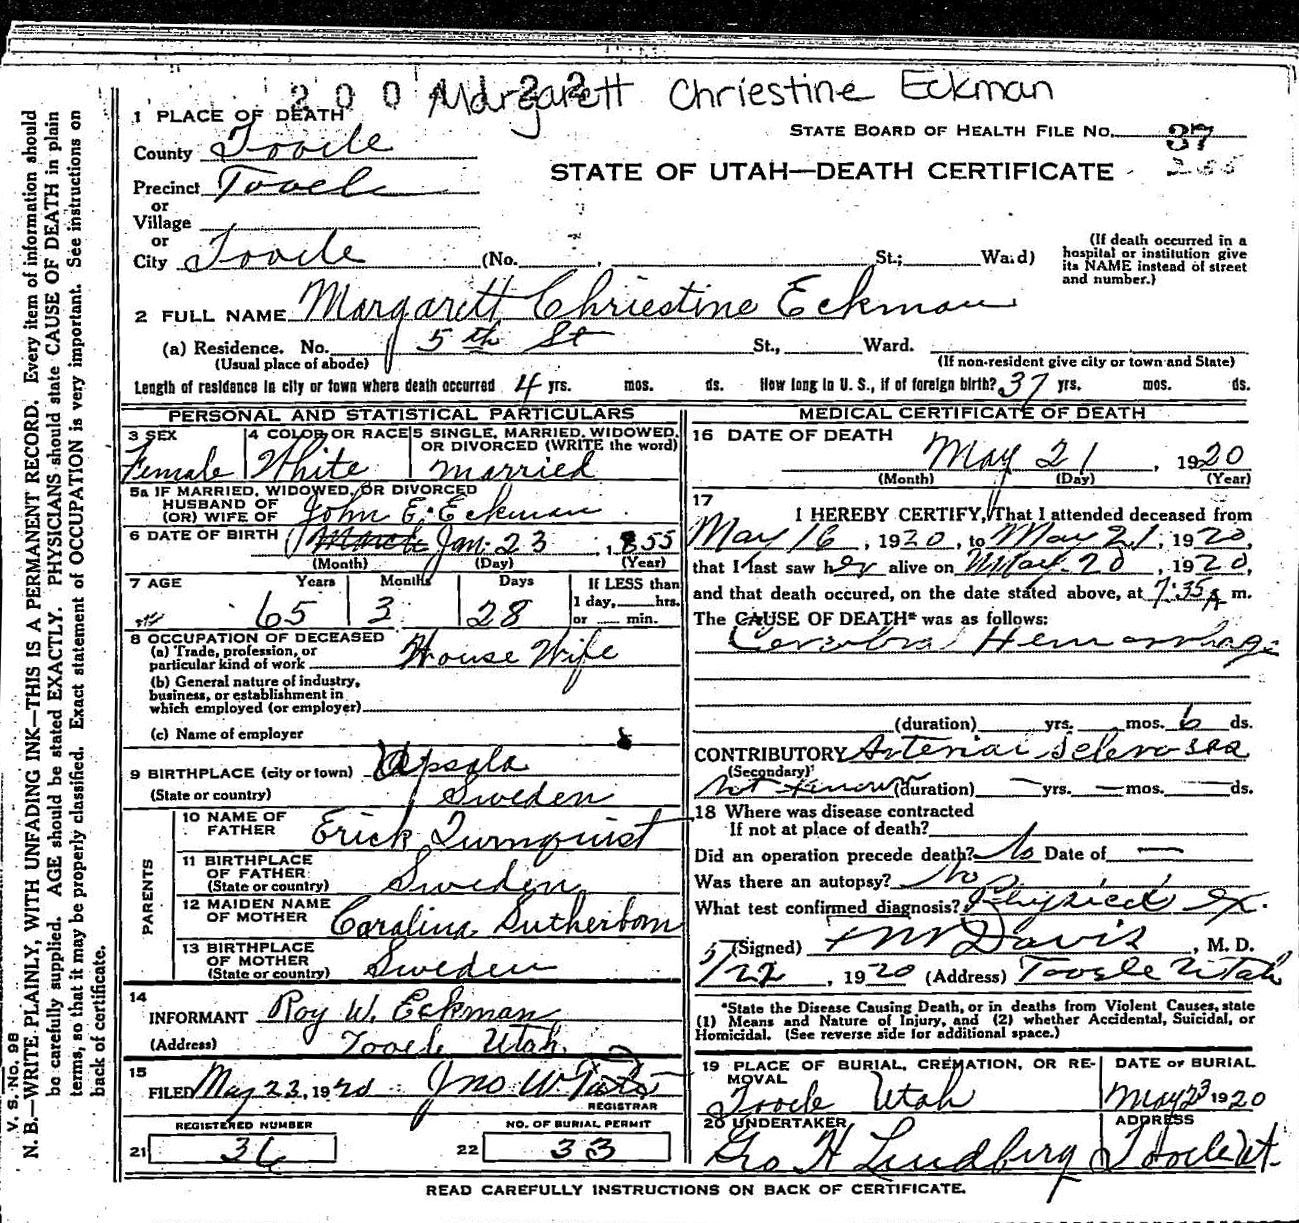 2 0 0 4 2 2
Margarett Chriestine Eckman
1 PLACE OF DEATH
STATE BOARD OF HEALTH FILE No. 37
255
County Tooele
STATE OF UTAH—DEATH CERTIFICATE
Precinct Tooele
or
Village
or
City Tooele (No. , St.; Ward)
(If death occurred in a
hospital or institution give
its NAME instead of street
and number.)
2 FULL NAME Margarett Chriestine Eckman
(a) Residence. No. 5th St St., Ward.
(Usual place of abode) (If non-resident give city or town and State)
Length of residence in city or town where death occurred 4 yrs. mos. ds. How long in U. S., if of foreign birth? 37 yrs. mos. ds.
PERSONAL AND STATISTICAL PARTICULARS
3 SEX 4 COLOR OR RACE 5 SINGLE, MARRIED, WIDOWED,
OR DIVORCED (WRITE the word)
Female White Married
5a IF MARRIED, WIDOWED, OR DIVORCED
HUSBAND OF
(OR) WIFE OF John E. Eckman
6 DATE OF BIRTH March Jan. 23, 1855
(Month) (Day) (Year)
7 AGE Years Months Days If LESS than
1 day, hrs.
65 3 28 or min.
8 OCCUPATION OF DECEASED
(a) Trade, profession, or
particular kind of work House Wife
(b) General nature of industry,
business, or establishment in
which employed (or employer)
(c) Name of employer
9 BIRTHPLACE (city or town) Upsala
(State or country) Sweden
PARENTS
10 NAME OF
FATHER Erick Turnquist
11 BIRTHPLACE
OF FATHER
(State or country) Sweden
12 MAIDEN NAME
OF MOTHER Caralina Sutherborn
13 BIRTHPLACE
OF MOTHER
(State or country) Sweden
14
INFORMANT Roy W. Eckman
(Address) Tooele Utah.
15
FILED May 23, 1920 Jno W
REGISTRAR
REGISTERED NUMBER NO. OF BURIAL PERMIT
21 36 22 33
MEDICAL CERTIFICATE OF DEATH
16 DATE OF DEATH
May 21, 1920
(Month) (Day) (Year)
17
I HEREBY CERTIFY, That I attended deceased from
May 16, 1920, to May 21, 1920,
that I last saw her alive on May 20, 1920,
and that death occured, on the date stated above, at 7.35 A m.
The CAUSE OF DEATH* was as follows:
Cerebral Hemorrhage
(duration) yrs. mos. 6 ds.
CONTRIBUTORY Arterial Sclerosis
(Secondary)
Not Known (duration) — yrs. — mos. — ds.
18 Where was disease contracted
If not at place of death?
Did an operation precede death? No Date of —
Was there an autopsy? No
What test confirmed diagnosis? Physical Ex.
(Signed) Davis, M. D.
5/22, 1920 (Address) Tooele Utah
*State the Disease Causing Death, or in deaths from Violent Causes, state
(1) Means and Nature of Injury, and (2) whether Accidental, Suicidal, or
Homicidal. (See reverse side for additional space.)
19 PLACE OF BURIAL, CREMATION, OR RE-
MOVAL
Tooele Utah
DATE OF BURIAL
May 23 1920
20 UNDERTAKER
Geo H Lindberg
ADDRESS
Tooele Ut.
READ CAREFULLY INSTRUCTIONS ON BACK OF CERTIFICATE.
V. S. No. 98
N. B.—WRITE PLAINLY, WITH UNFADING INK—THIS IS A PERMANENT RECORD. Every item of information should
be carefully supplied. AGE should be stated EXACTLY. PHYSICIANS should state CAUSE OF DEATH in plain
terms, so that it may be properly classified. Exact statement of OCCUPATION is very important. See instructions on
back of certificate.